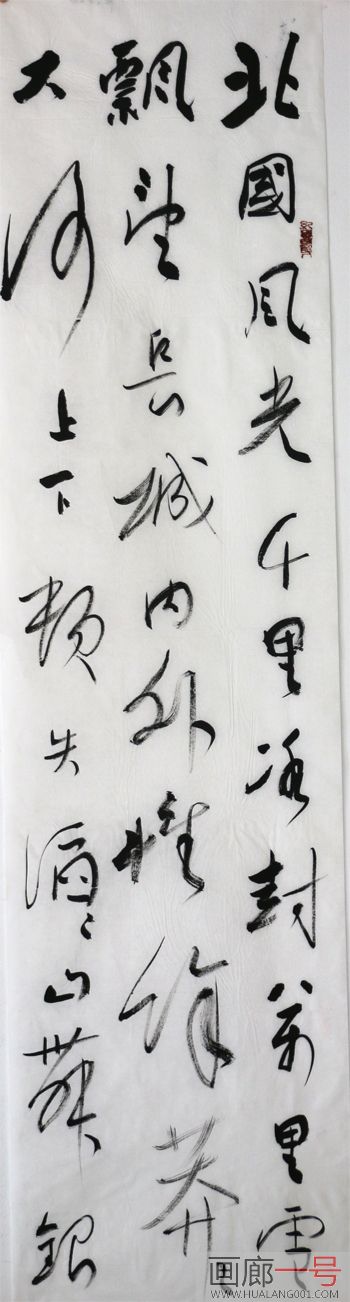 北國風光千里冰封萬里雪
飄望長城内外惟餘莽
大河上下頓失滔〻山舞銀
画廊一号
WWW.HUALANG001.COM